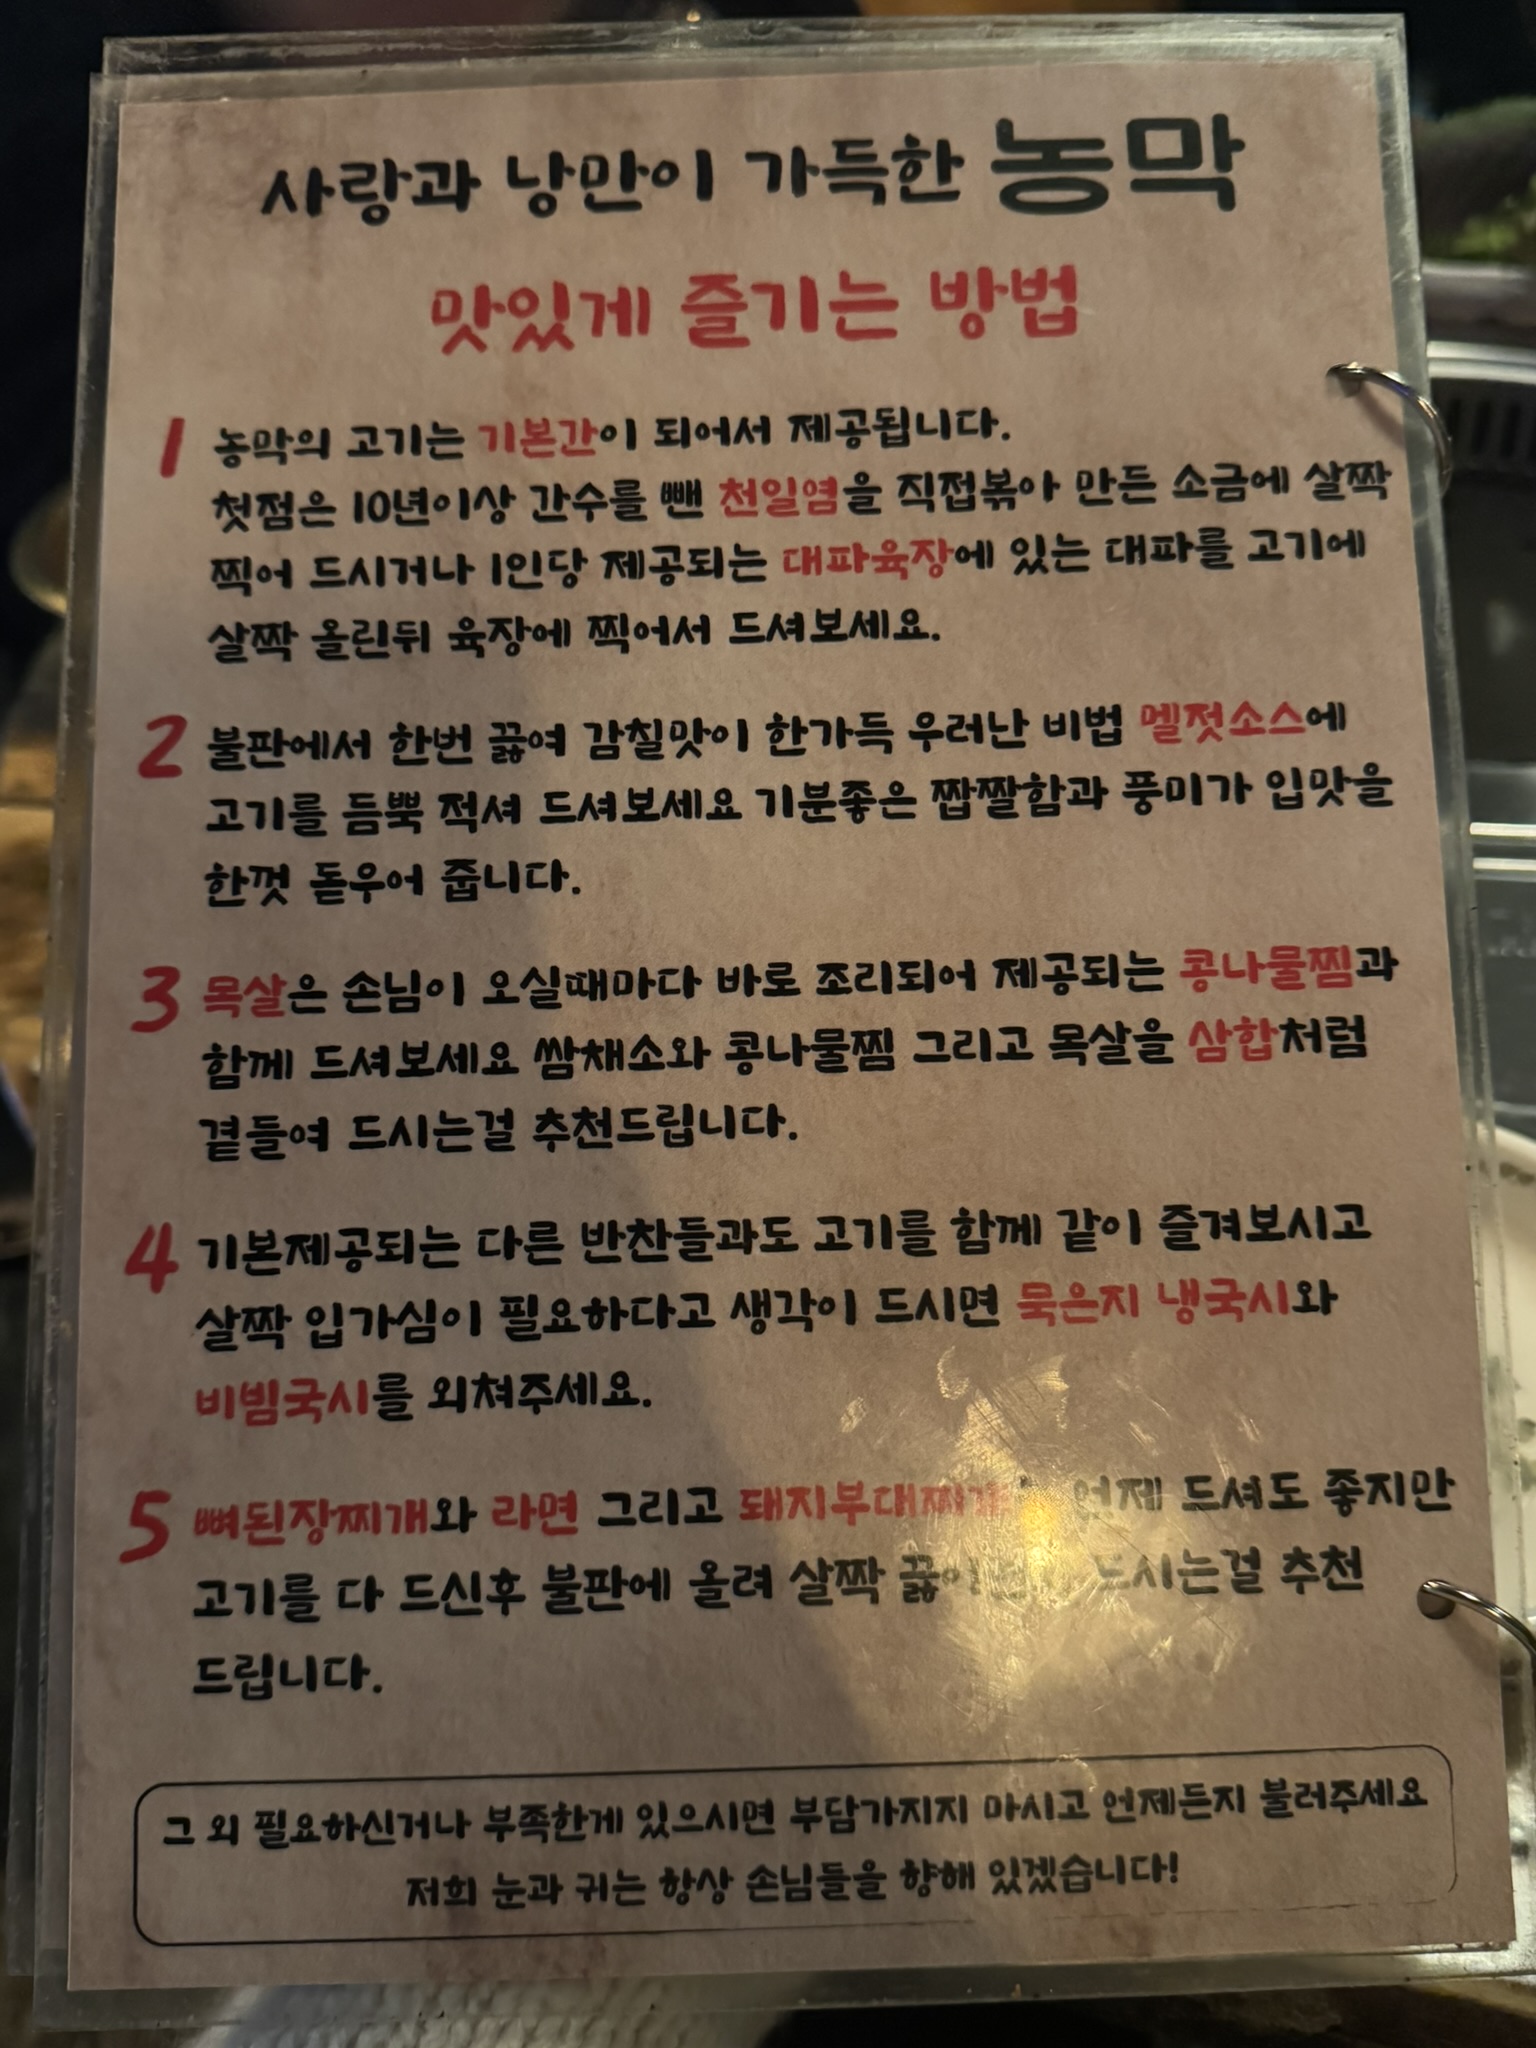 사랑과 낭만이 가득한 농막
맛있게 즐기는 방법
1 농막의 고기는 기본간이 되어서 제공됩니다.
첫점은 10년이상 간수를 뺀 천일염을 직접볶아 만든 소금에 살짝
찍어 드시거나 1인당 제공되는 대파육장에 있는 대파를 고기에
살짝 올린뒤 육장에 찍어서 드셔보세요.
2 불판에서 한번 끓여 감칠맛이 한가득 우러난 비법 멜젓소스에
고기를 듬뿍 적셔 드셔보세요 기분좋은 짭짤함과 풍미가 입맛을
한껏 돋우어 줍니다.
3 목살은 손님이 오실때마다 바로 조리되어 제공되는 콩나물찜과
함께 드셔보세요 쌈채소와 콩나물찜 그리고 목살을 삼합처럼
곁들여 드시는걸 추천드립니다.
4 기본제공되는 다른 반찬들과도 고기를 함께 같이 즐겨보시고
살짝 입가심이 필요하다고 생각이 드시면 묵은지 냉국시와
비빔국시를 외쳐주세요.
5 뼈된장찌개와 라면 그리고 돼지부대찌개 언제 드셔도 좋지만
고기를 다 드신후 불판에 올려 살짝 드시는걸 추천
드립니다.
그 외 필요하신거나 부족한게 있으시면 부담가지지 마시고 언제든지 불러주세요
저희 눈과 귀는 항상 손님들을 향해 있겠습니다!